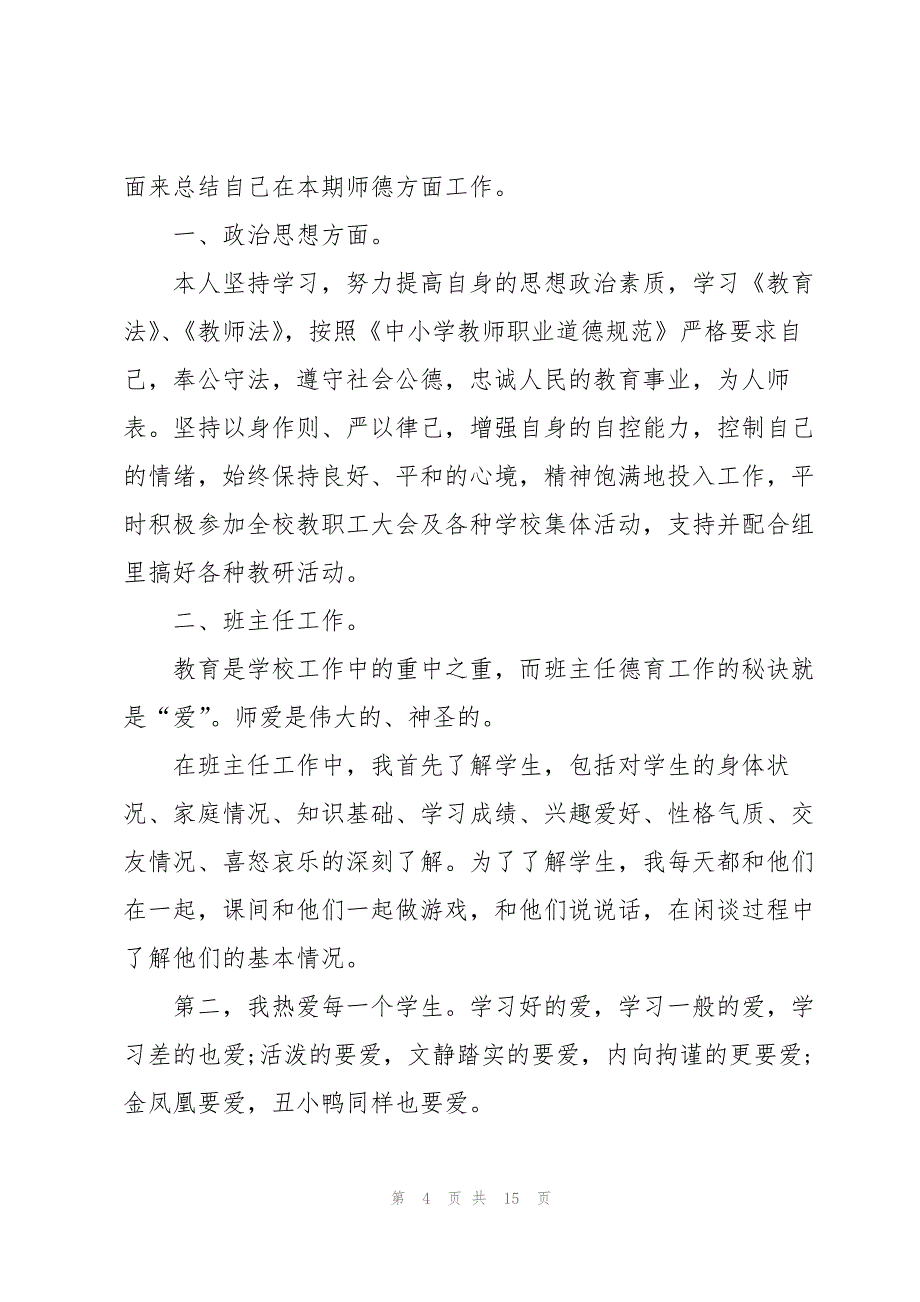 面来总结自己在本期师德方面工作。
一、政治思想方面。
本人坚持学习，努力提高自身的思想政治素质，学习《教育
法》、《教师法》，按照《中小学教师职业道德规范》严格要求自
己，奉公守法，遵守社会公德，忠诚人民的教育事业，为人师
表。坚持以身作则、严以律己，增强自身的自控能力，控制自己
的情绪，始终保持良好、平和的心境，精神饱满地投入工作，平
时积极参加全校教职工大会及各种学校集体活动，支持并配合组
里搞好各种教研活动。
二、班主任工作。
教育是学校工作中的重中之重，而班主任德育工作的秘诀就
是“爱”。师爱是伟大的、神圣的。
在班主任工作中，我首先了解学生，包括对学生的身体状
况、家庭情况、知识基础、学习成绩、兴趣爱好、性格气质、交
友情况、喜怒哀乐的深刻了解。为了了解学生，我每天都和他们
在一起，课间和他们一起做游戏，和他们说说话，在闲谈过程中
了解他们的基本情况。
第二，我热爱每一个学生。学习好的爱，学习一般的爱，学
习差的也爱;活泼的要爱，文静踏实的要爱，内向拘谨的更要爱;
金凤凰要爱，丑小鸭同样也要爱。
第 4 页 共 15 页